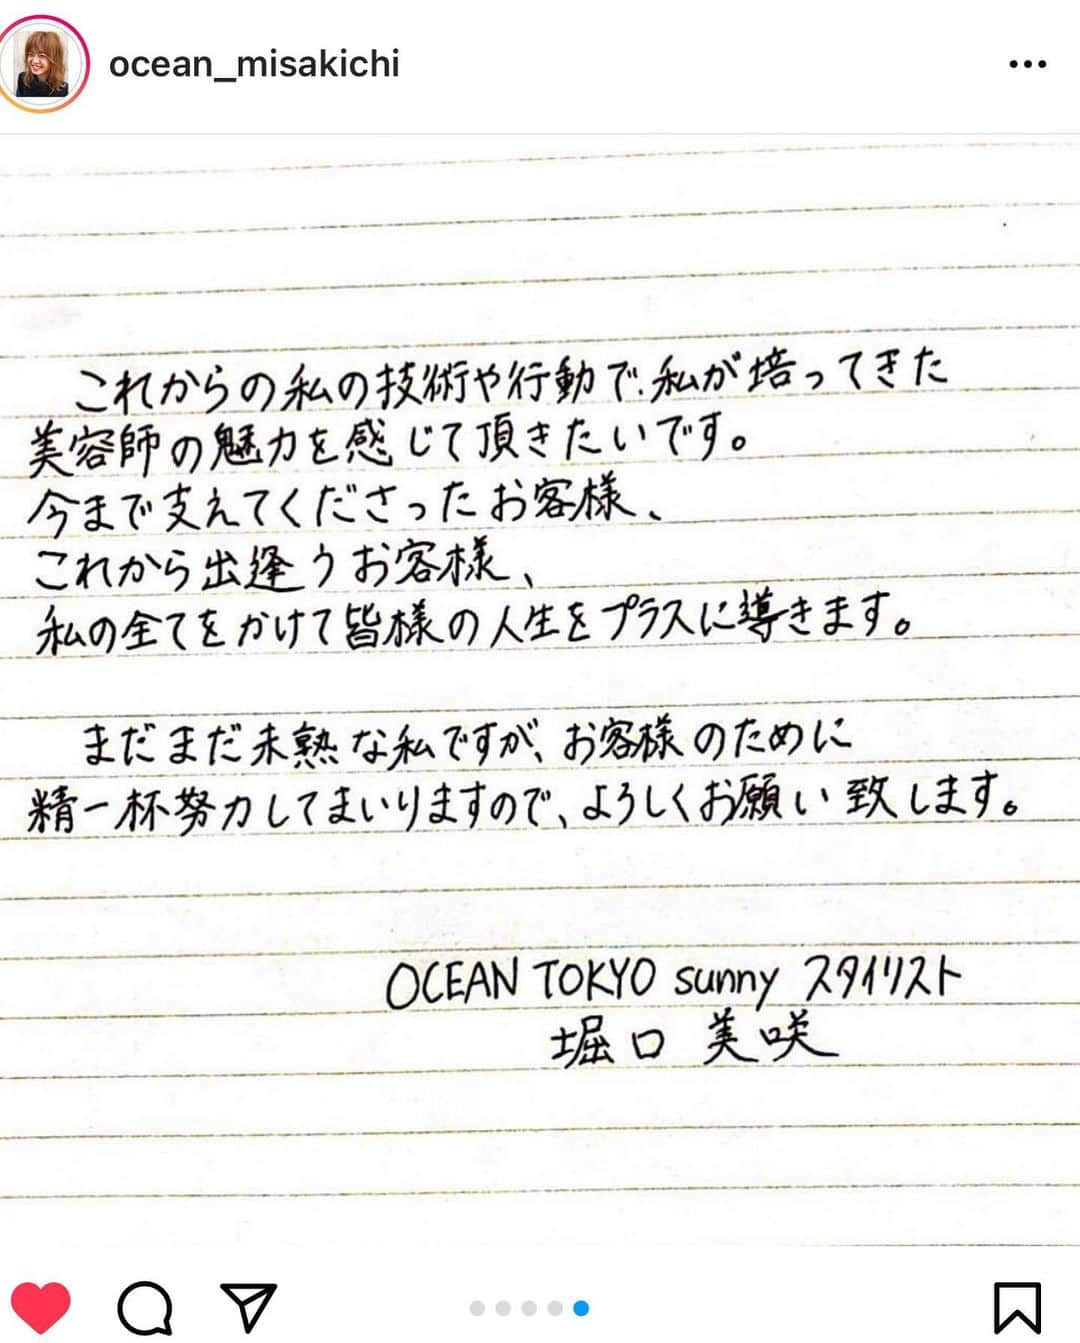 ocean_misakichi
これからの私の技術や行動で、私が培ってきた
美容師の魅力を感じて頂きたいです。
今まで支えてくださったお客様、
これから出逢うお客様、
私の全てをかけて皆様の人生をプラスに導きます。
まだまだ未熟な私ですが、お客様のために
精一杯努力してまいりますので、よろしくお願い致します。
OCEAN TOKYO sunny スタイリスト
堀口 美咲